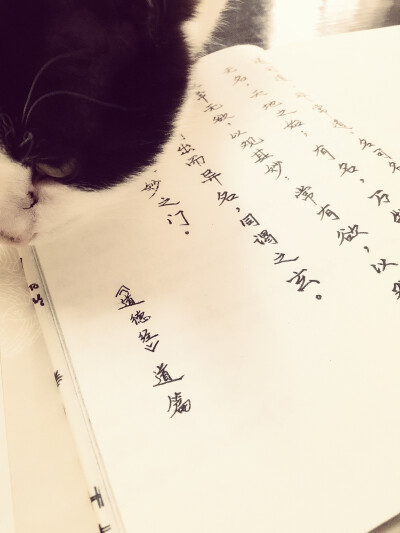 名可名
无名,天地之始;有名,万
无欲,以观其妙;常有欲,以
出而异名,同谓之玄。
妙之门。
《道德经》道篇